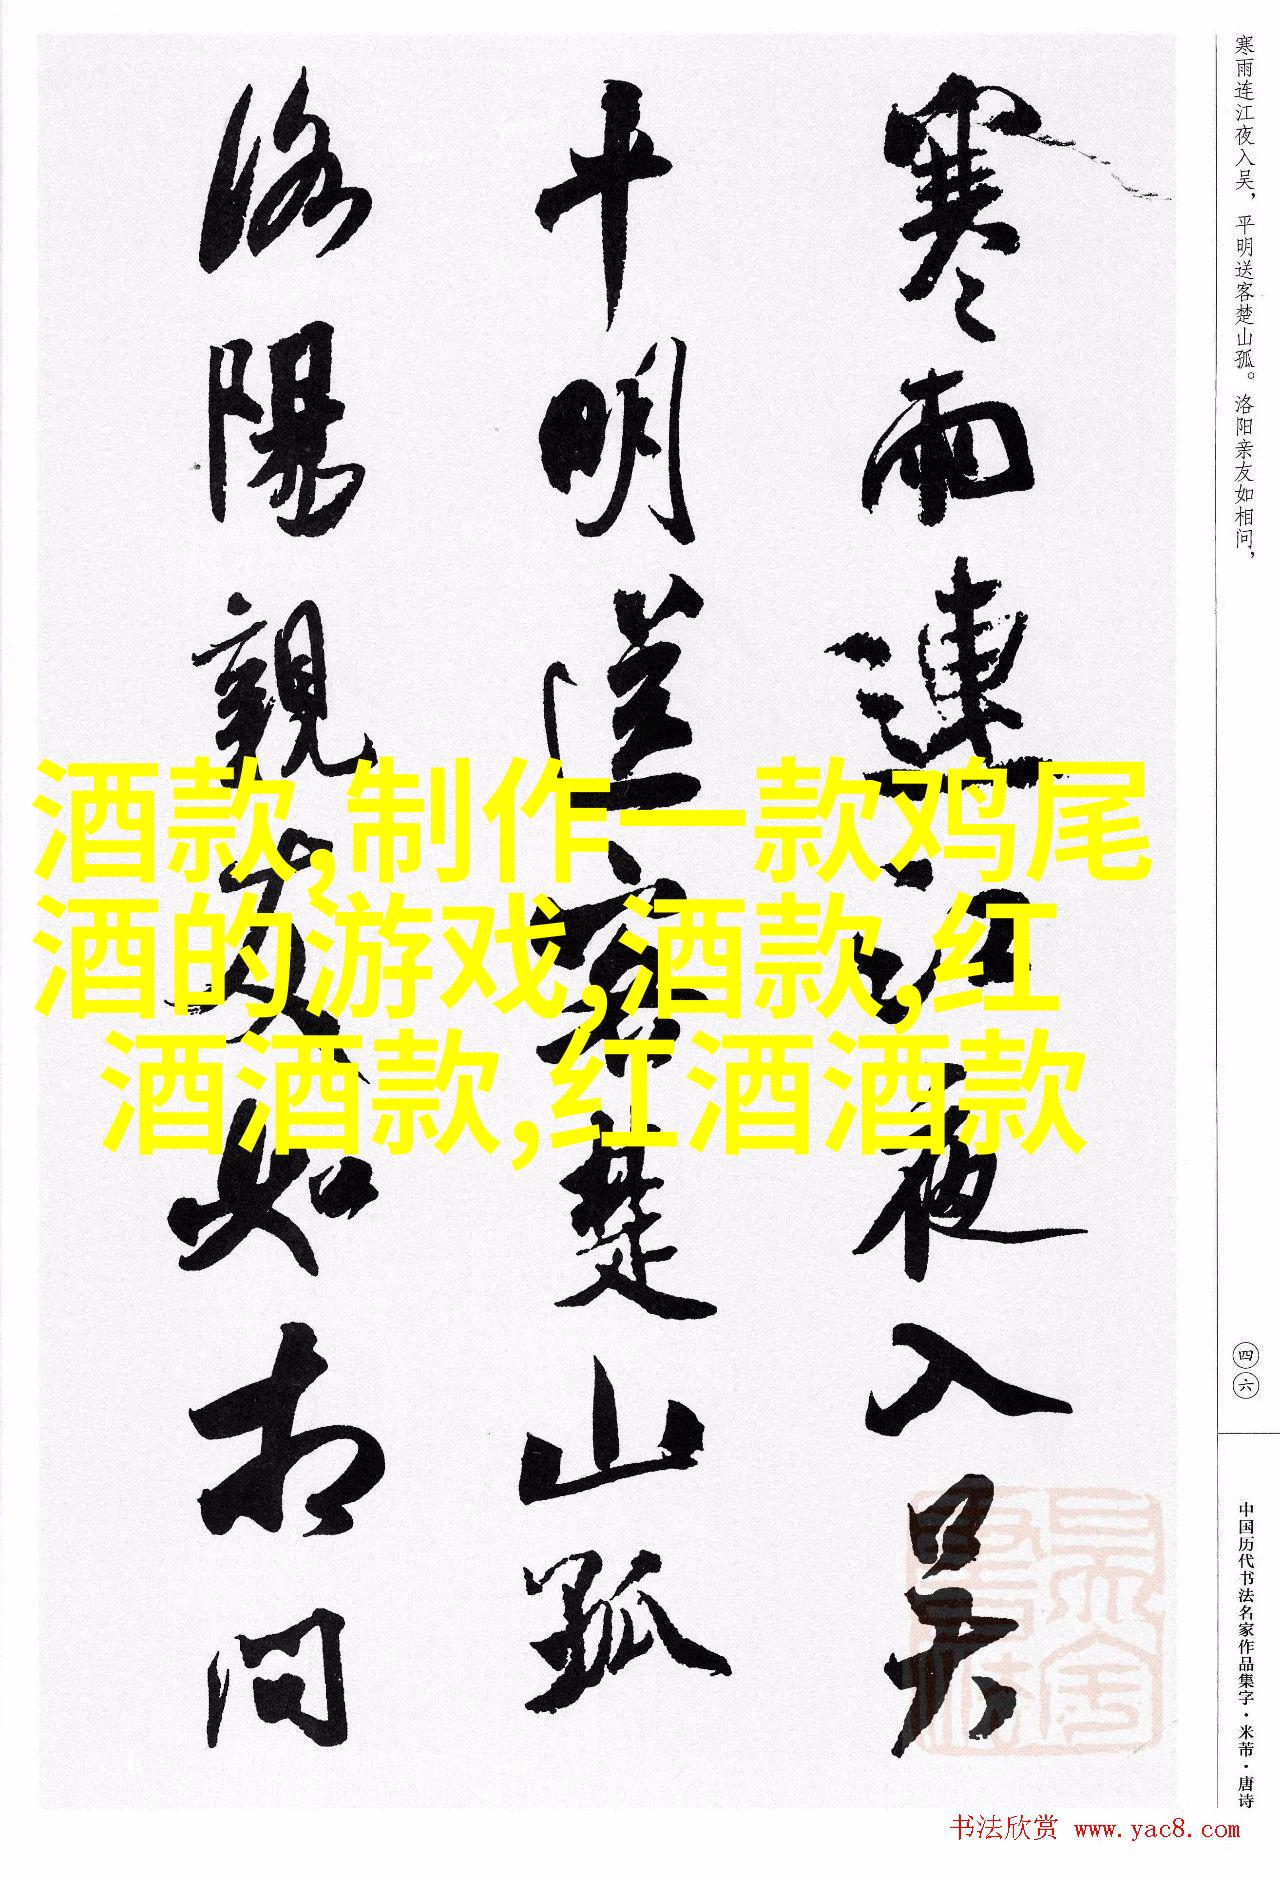 寒雨连江夜入吴，平明送客楚山孤。洛阳亲友如相问，
四六
中国历代书法名家作品集字·米芾·唐诗
寒雨連江夜入吴
平明送客楚山孤
洛陽親友如相问
酒款,制作一款鸡尾
酒的游戏,酒款,红
酒酒款,红酒酒款
书法欣赏 www.yac8.com